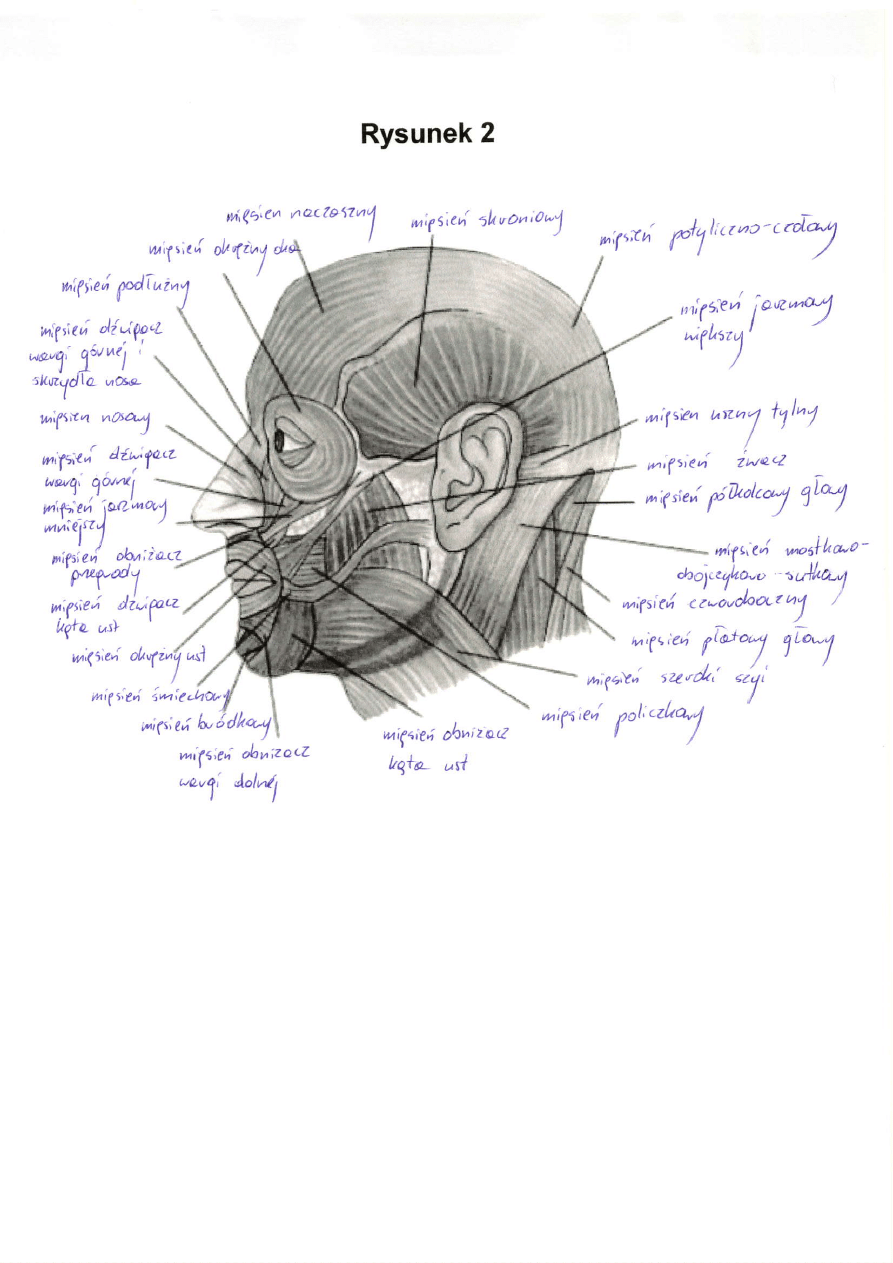 Rysunek 2
mięsień naczaszny
mięsień skroniowy
mięsień potyliczno-czołowy
mięsień okrężny oka
mięsień podłużny
mięsień dźwigacz
wargi górnej i
skrzydła nosa
mięsień nosowy
mięsień dźwigacz
wargi górnej
mięsień jarzmowy
mniejszy
mięsień obniżacz
przegrody
mięsień dźwigacz
kąta ust
mięsień okrężny ust
mięsień śmiechowy
mięsień bródkowy
mięsień obniżacz
wargi dolnej
mięsień obniżacz
kąta ust
mięsień jarzmowy
większy
mięsień uszny tylny
mięsień żwacz
mięsień półkolcowy głowy
mięsień mostkowo-
obojczykowo-sutkowy
mięsień czworoboczny
mięsień płatowy głowy
mięsień szeroki szyi
mięsień policzkowy